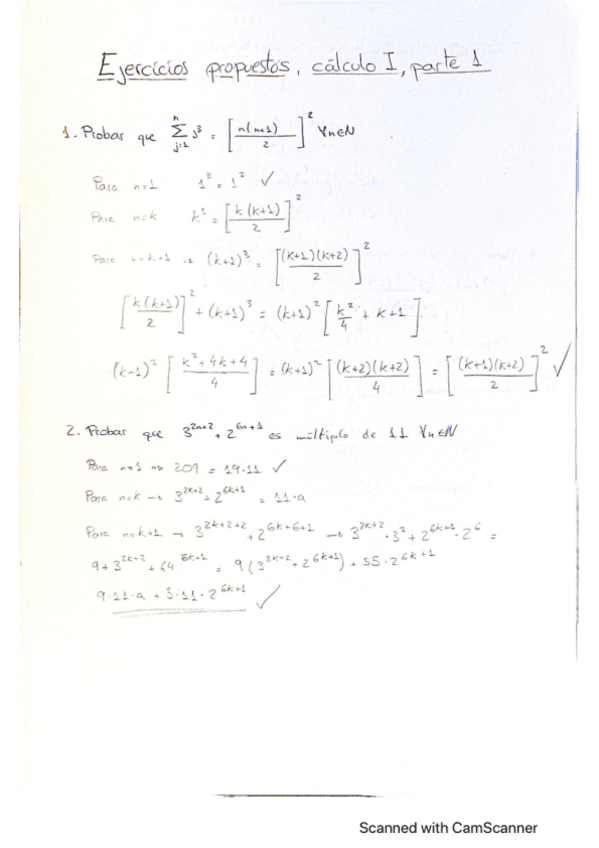 Ejercicios propuestos, cálculo I, parte 1
1. Probar que ∑_{j=1}^{n} j³ = [n(n+1)/2]² ∀n∈ℕ
Para n=1 1³ = 1² ✓
Para n=k k³ = [k(k+1)/2]²
Para n=k+1 → (k+1)³ = [(k+1)(k+2)/2]²
[k(k+1)/2]² + (k+1)³ = (k+1)² [k²/4 + k+1]
(k+1)² [k²+4k+4/4] = (k+1)² [(k+2)(k+2)/4] = [(k+1)(k+2)/2]² ✓
2. Probar que 3^{2n+2} + 2^{6n+1} es múltiplo de 11 ∀n∈ℕ
Para n=1 → 209 = 19·11 ✓
Para n=k → 3^{2k+2} + 2^{6k+1} = 11·a
Para n=k+1 → 3^{2k+2+2} + 2^{6k+6+1} → 3^{2k+2}·3² + 2^{6k+1}·2⁶ =
9+3^{2k+2} + 64^{6k+1} = 9(3^{2k+2} + 2^{6k+1}) + 55·2^{6k+1}
9·11·a + 5·11·2^{6k+1} ✓
Scanned with CamScanner